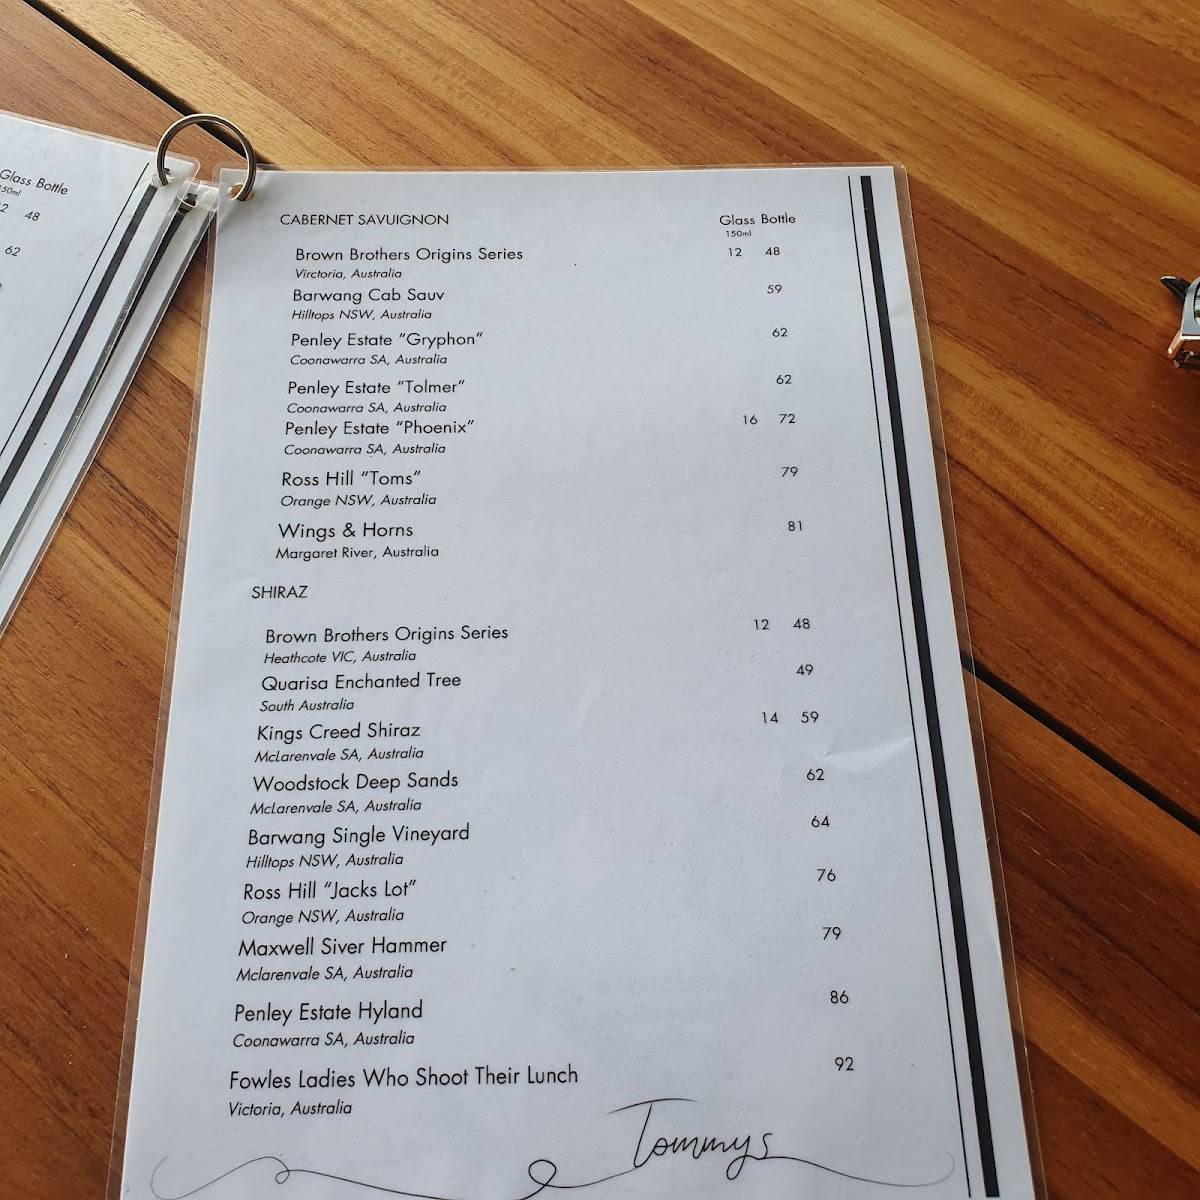 Glass Bottle
150ml
48
62
CABERNET SAVUIGNON Glass Bottle
150ml
Brown Brothers Origins Series 12 48
Virctoria, Australia
Barwang Cab Sauv 59
Hilltops NSW, Australia
Penley Estate “Gryphon” 62
Coonawarra SA, Australia
Penley Estate “Tolmer” 62
Coonawarra SA, Australia
Penley Estate “Phoenix” 16 72
Coonawarra SA, Australia
Ross Hill “Toms” 79
Orange NSW, Australia
Wings & Horns 81
Margaret River, Australia
SHIRAZ
Brown Brothers Origins Series 12 48
Heathcote VIC, Australia
Quarisa Enchanted Tree 49
South Australia
Kings Creed Shiraz 14 59
McLarenvale SA, Australia
Woodstock Deep Sands 62
McLarenvale SA, Australia
Barwang Single Vineyard 64
Hilltops NSW, Australia
Ross Hill “Jacks Lot” 76
Orange NSW, Australia
Maxwell Siver Hammer 79
Mclarenvale SA, Australia
Penley Estate Hyland 86
Coonawarra SA, Australia
Fowles Ladies Who Shoot Their Lunch 92
Victoria, Australia
Tommys